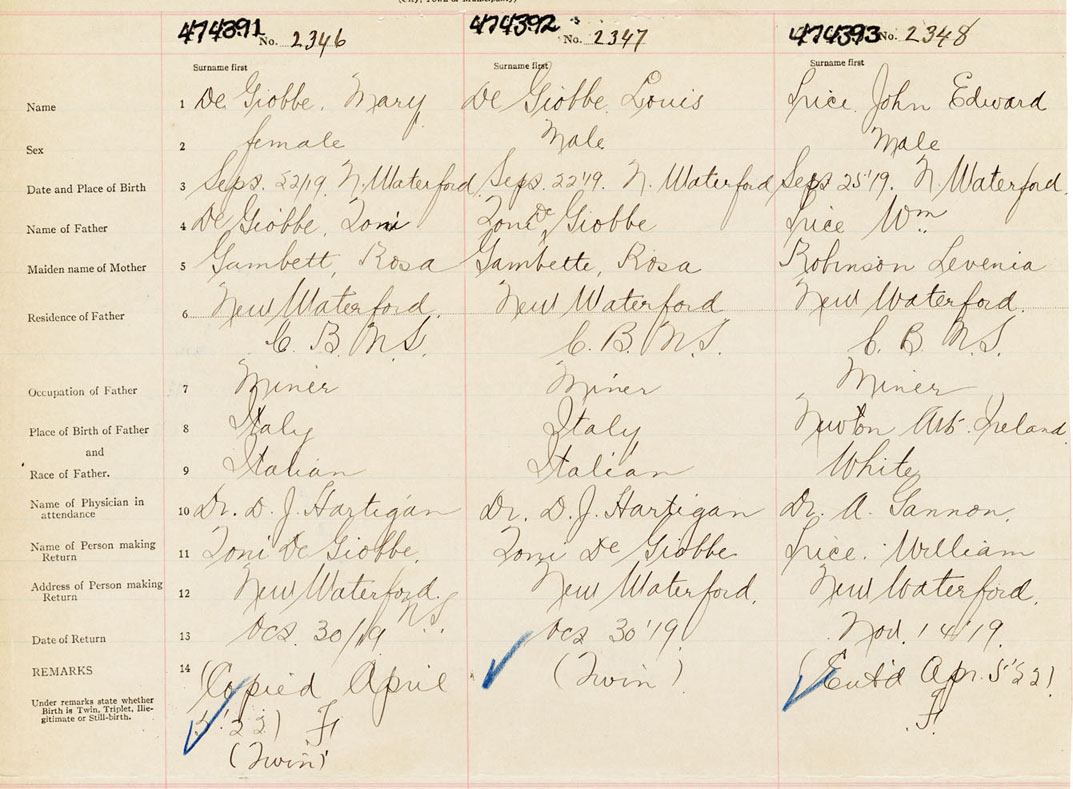 (City, Town or Municipality)
474391 No. 2346 474392 No. 2347 474393 No. 2348
Surname first Surname first Surname first
Name 1 De Giobbe, Mary De Giobbe, Louis Price, John Edward
Sex 2 female Male Male
Date and Place of Birth 3 Sept. 22/19. N. Waterford Sept. 22'19. N. Waterford Sept 25'19. N. Waterford.
Name of Father 4 De Giobbe, Toni Toni De Giobbe Price Wm.
Maiden name of Mother 5 Gambett, Rosa Gambette, Rosa Robinson Levenia
Residence of Father 6 New Waterford, New Waterford New Waterford.
C. B. N.S. C. B. N.S. C. B. N.S.
Occupation of Father 7 Miner Miner Miner
Place of Birth of Father 8 Italy Italy Newton Ireland
and
Race of Father. 9 Italian Italian White
Name of Physician in
attendance 10 Dr. D. J. Hartigan Dr. D. J. Hartigan Dr. A. Gannon.
Name of Person making
Return 11 Toni De Giobbe, Toni De Giobbe Price. William
Address of Person making
Return 12 New Waterford. N.S. New Waterford, New Waterford.
Date of Return 13 Oct. 30/19 Oct 30'19. Nov. 14'19.
REMARKS 14 (Copied April (Twin) (Ent'd Apr. 5'22)
Under remarks state whether
Birth is Twin, Triplet, Ille-
gitimate or Still-birth.
5'22) F.
F.
(Twin)